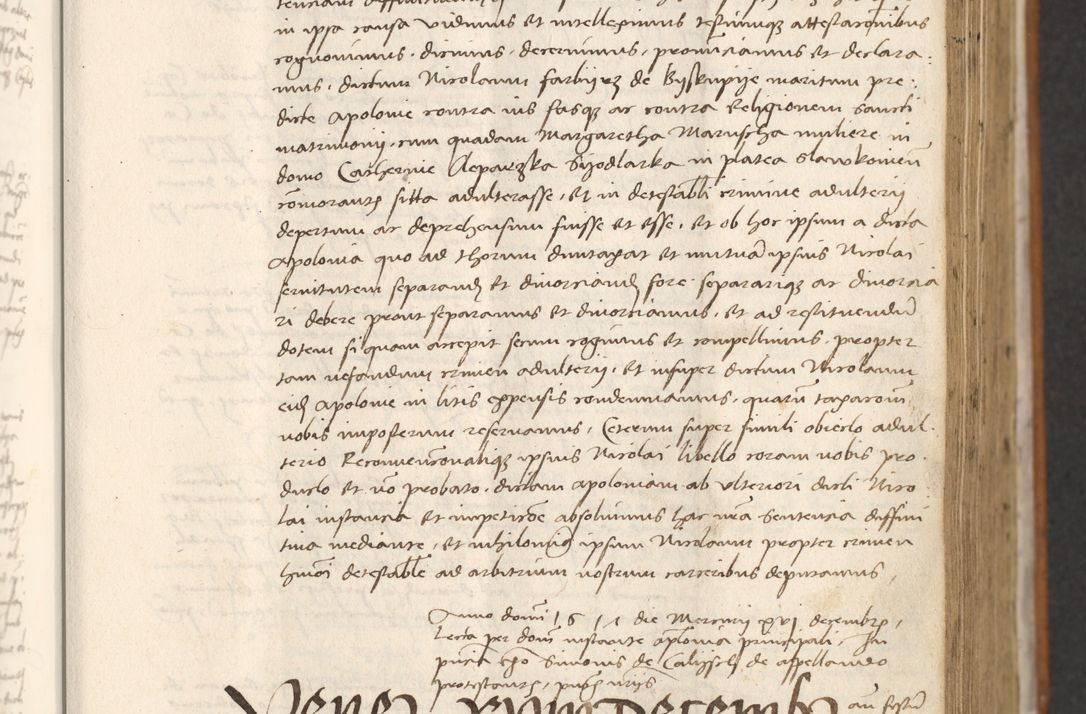 in ipsa causa vidimus et intelleximus testiumque attestacionibus
cognovimus, dicimus, decernimus, pronunciamus et declara-
mus, dictum Nicolaum farbijrz de Byskupije maritum pre-
dicte Apolonie contra ius fasque ac contra Religionem sancti
matrimonii, cum quadam Margaretha Maruscha muliere in
domo Catherine Cleparzska Syodlarka in platea slawkowien
comorantis sitta adulterasse, et in detestabli crimine adulterii
repertum ac deprehensum fuisse et esse, et ob hoc ipsum a dicta
Apolonia quo ad thorum dumtaxat et mutuam ipsius Nicolai
servitutem separand et divorciand fore separarique ac divorcia
ri debere prout separamus et divorciamus, et ad restituendum
dotem si quam accepit secum cogimus et compellimus, propter
tam nefandum crimen adulterii, et insuper dictum Nicolaum
eidem Apolonie in litis expensis condemnamus, quarum taxacionem
nobis imposterum reservamus, Ceterum super simili obiecto adul-
terio Reconvencionalique ipsius Nicolai libello coram nobis pro-
ducto et non probato, dictam Apoloniam ab ulteriori dicti Nico-
lai instancia et impeticione absolvimus hac nostra sentencia diffini
tiva mediante, et nihilominus ipsum Nicolaum propter crimen
huiusmodi detestabile ad arbitrium nostrum carceribus deputamus,
Anno domini die Mercurii xvi decembris,
Lecta per dominum instante Apolonia principali, In
presencia Simonis de de appellando
protestantis, presentibus
Vene xviii Decemb